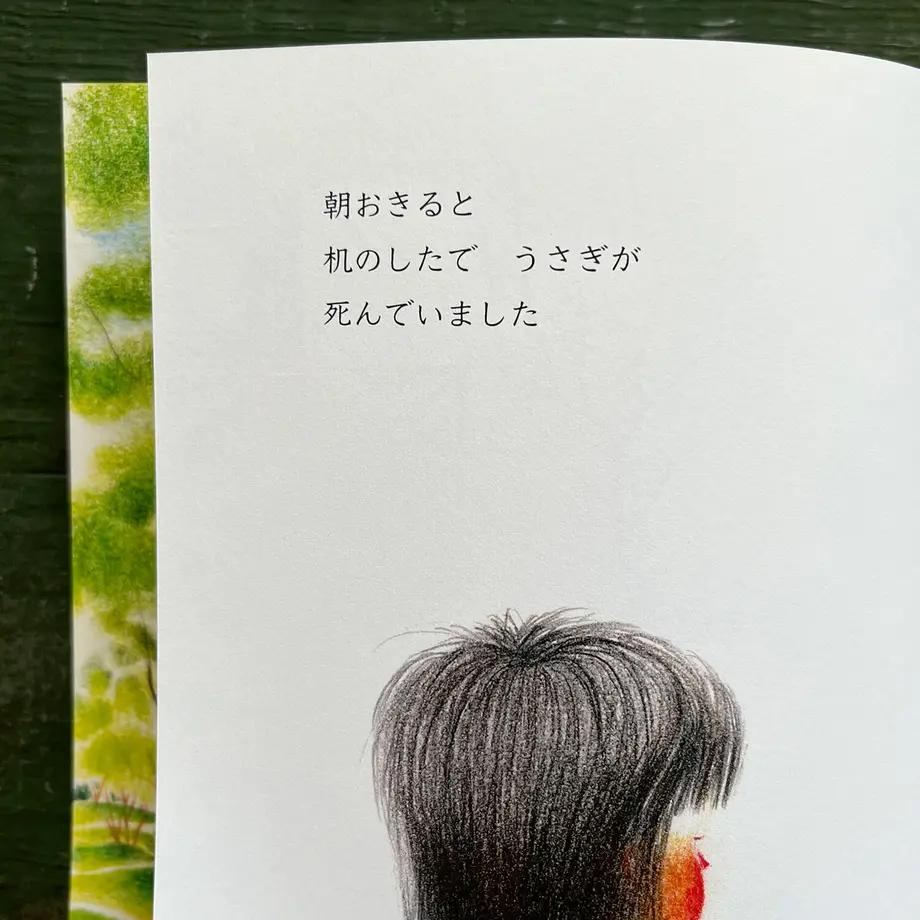 朝おきると
机のしたで　うさぎが
死んでいました